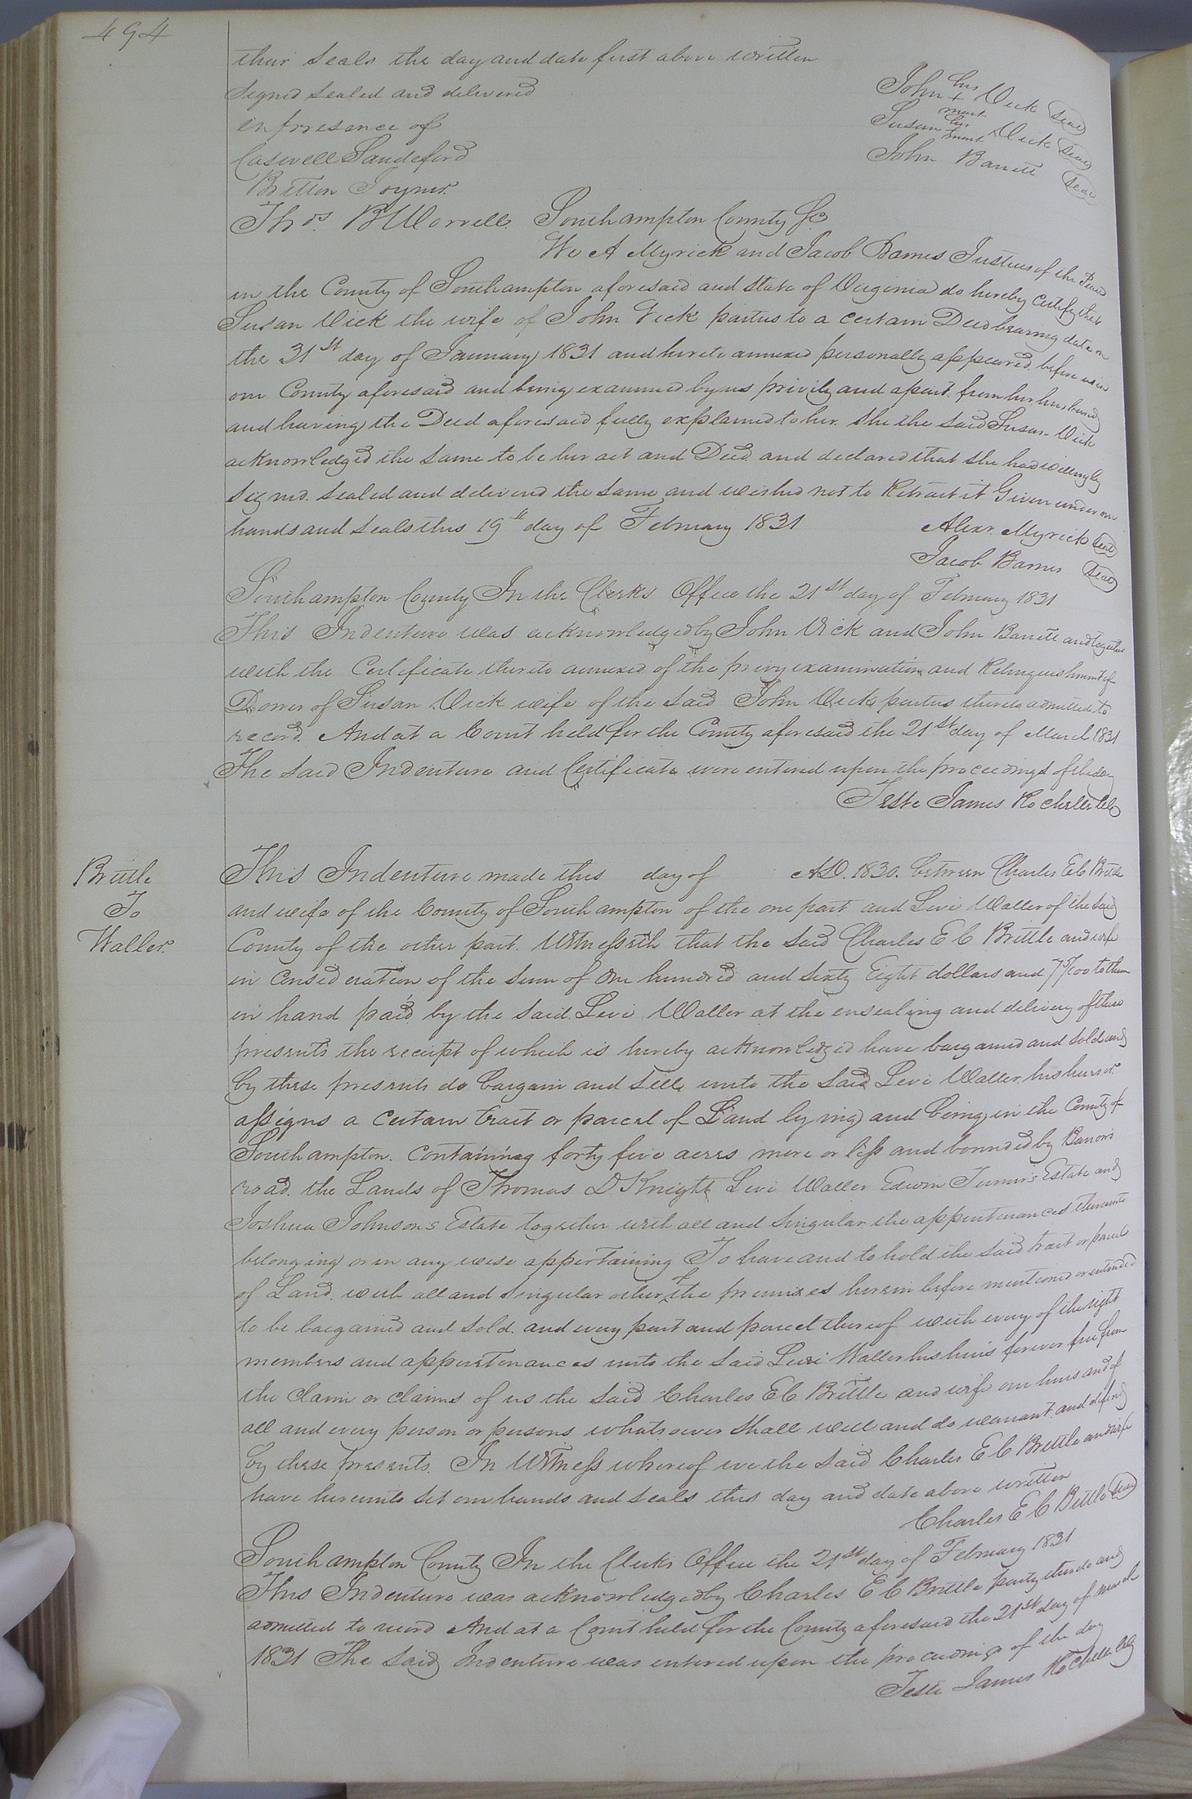 494
their seals the day and date first above written
Signed sealed and delivered
in presence of
John his + mark Vick Seal
Susan her mark Vick Seal
John Barrett Seal
Caswell Sandeford
Britton Joyner
Thos. B Worrell Southampton County Sc
We A Myrick and Jacob Barnes Justices of the Peace
in the County of Southampton aforesaid and State of Virginia do hereby certify that
Susan Vick the wife of John Vick parties to a certain Deed bearing date on
the 31st day of January 1831 and hereto annexed personally appeared before us in
our County aforesaid and being examined by us privily and apart from her husband
and having the Deed aforesaid fully explained to her She the said Susan Vick
acknowledged the same to be her act and Deed and declared that she had willingly
signed sealed and delivered the same and wished not to Retract it Given under our
hands and seals this 19th day of February 1831
Alexr. Myrick Seal
Jacob Barnes Seal
Southampton County In the Clerks Office the 21st day of February 1831
This Indenture was acknowledged by John Vick and John Barrett and together
with the Certificate thereto annexed of the privy examination and Relinquishment of
Dower of Susan Vick wife of the said John Vick parties thereto admitted to
record. And at a Court held for the County aforesaid the 21st day of March 1831
The said Indenture and Certificate were entered upon the proceedings of the day
Teste James Rochelle Clk
Brittle
To
Waller
This Indenture made this day of AD. 1830. between Charles E C Brittle
and wife of the County of Southampton of the one part and Levi Waller of the said
County of the other part. Witnesseth that the said Charles E C Brittle and wife
in consideration of the sum of One hundred and sixty Eight dollars and 75/100 to them
in hand paid by the said Levi Waller at the ensealing and delivery of these
presents the receipt of which is hereby acknowledged have bargained and sold and
by these presents do bargain and sell unto the said Levi Waller his heirs or
assigns a certain tract or parcel of Land lying and being in the County of
Southampton. Containing forty five acres more or less and bounded by Barrow's
road. the Lands of Thomas D Knight Levi Waller Edwin Turner's Estate and
Joshua Johnsons Estate together with all and singular the appurtenances thereunto
belonging or in any wise appertaining To have and to hold the said tract or parcel
of Land. with all and singular other the premises herein before mentioned or intended
to be bargained and sold. and every part and parcel thereof with every of the right
members and appurtenances unto the said Levi Waller his heirs forever free from
the claim or claims of us the said Charles E C Brittle and wife our heirs and of
all and every person or persons whatsoever shall will and do warrant and defend
by these presents. In Witness whereof we the said Charles E C Brittle and wife
have hereunto set our hands and seals this day and date above written
Charles E C Brittle Seal
Southampton County In the Clerks Office the 21st day of February 1831
This Indenture was acknowledged by Charles E C Brittle party thereto and
admitted to record And at a Court held for the County aforesaid the 21st day of March
1831 The said Indenture was entered upon the proceedings of the day
Teste James Rochelle Clk